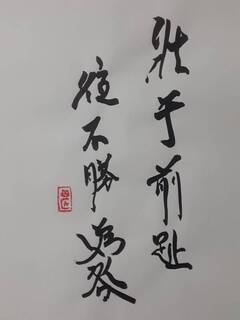 壯于前趾
往不勝為咎